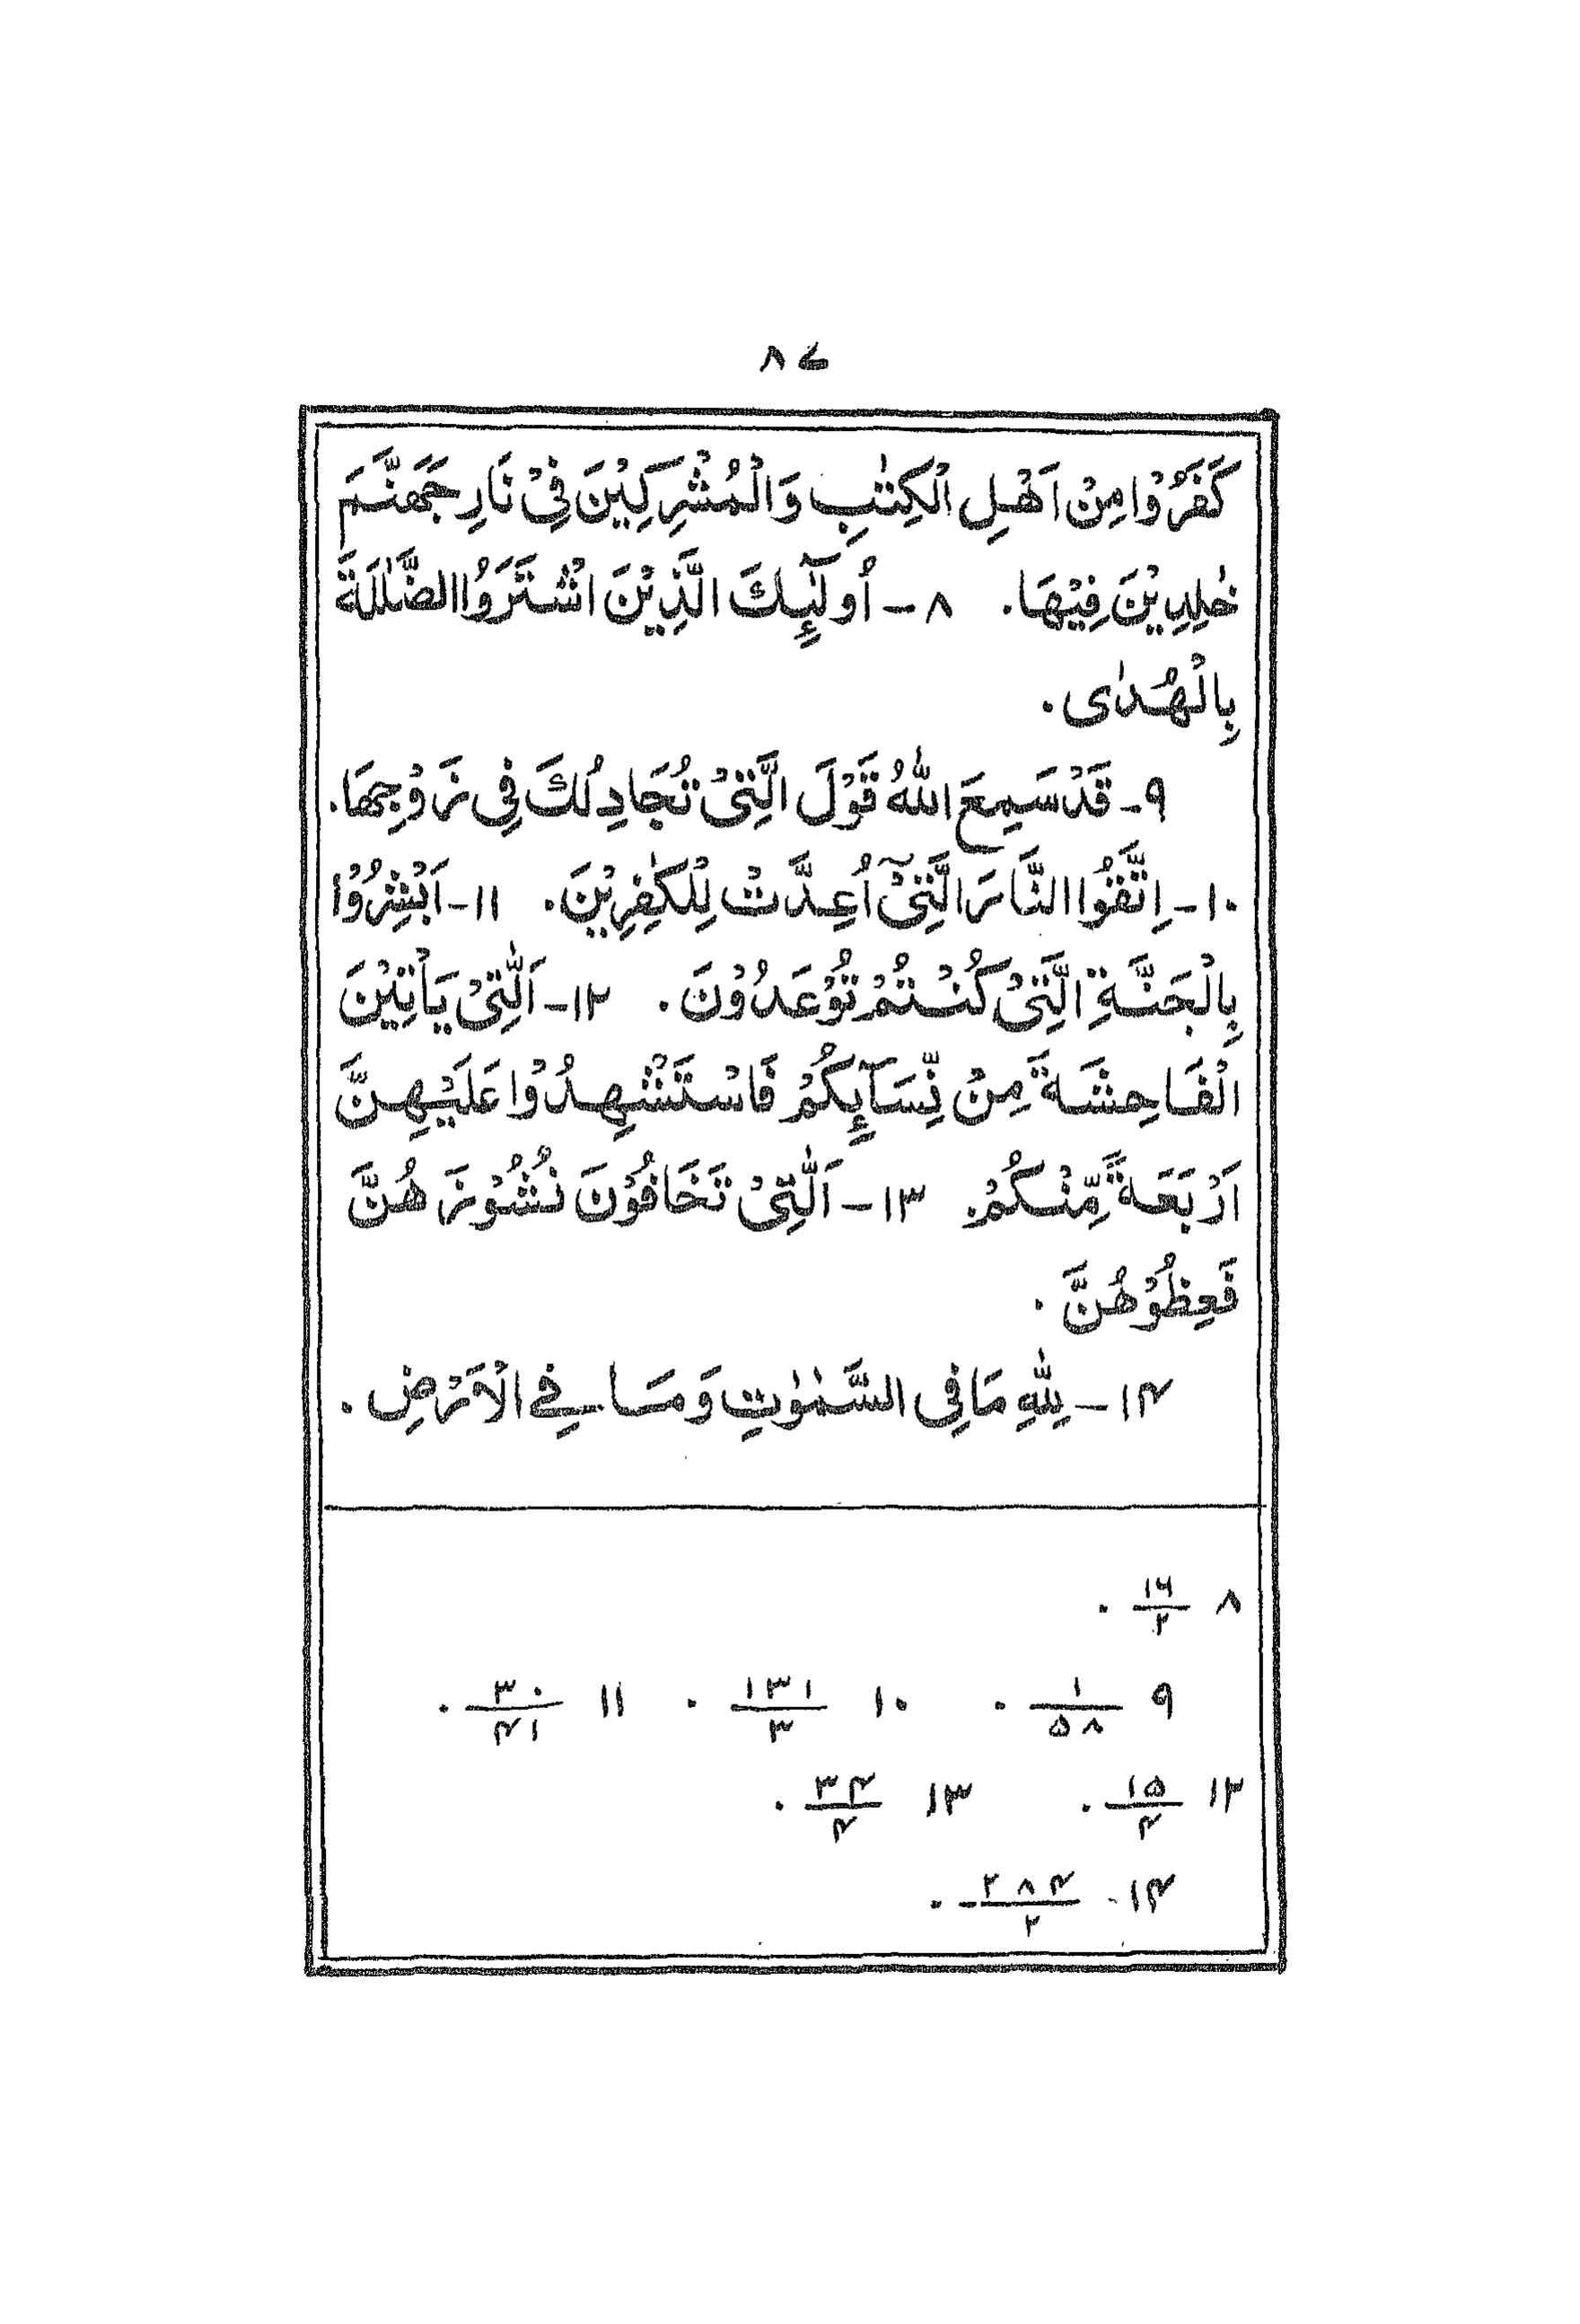 ۸۷
كَفَرُوْا مِنْ اَهْلِ الْكِتٰبِ وَالْمُشْرِكِيْنَ فِيْ نَارِ جَهَنَّمَ
خٰلِدِيْنَ فِيْهَا۔ ۸- اُولٰٓئِكَ الَّذِيْنَ اشْتَرَوُا الضَّلٰلَةَ
بِالْهُدٰى۔
۹- قَدْ سَمِعَ اللّٰهُ قَوْلَ الَّتِيْ تُجَادِلُكَ فِي زَوْجِهَا۔
۱۰- اِتَّقُوا النَّارَ الَّتِيْٓ اُعِدَّتْ لِلْكٰفِرِيْنَ۔ ۱۱- اَبْشِرُوْا
بِالْجَنَّةِ الَّتِيْ كُنْتُمْ تُوْعَدُوْنَ۔ ۱۲- اَلّٰتِيْ يَاْتِيْنَ
الْفَاحِشَةَ مِنْ نِّسَآئِكُمْ فَاسْتَشْهِدُوْا عَلَيْهِنَّ
اَرْبَعَةً مِّنْكُمْ۔ ۱۳- اَلّٰتِيْ تَخَافُوْنَ نُشُوْزَهُنَّ
فَعِظُوْهُنَّ۔
۱۴- لِلّٰهِ مَا فِي السَّمٰوٰتِ وَمَا فِي الْاَرْضِ۔
۸ ۱۶/۲ ۔
۹ ۱/۵۸ ۔ ۱۰ ۱۳۱/۳ ۔ ۱۱ ۳۰/۴۱ ۔
۱۲ ۱۵/۴ ۔ ۱۳ ۳۴/۴ ۔
۱۴- ۲۸۴/۲ ۔